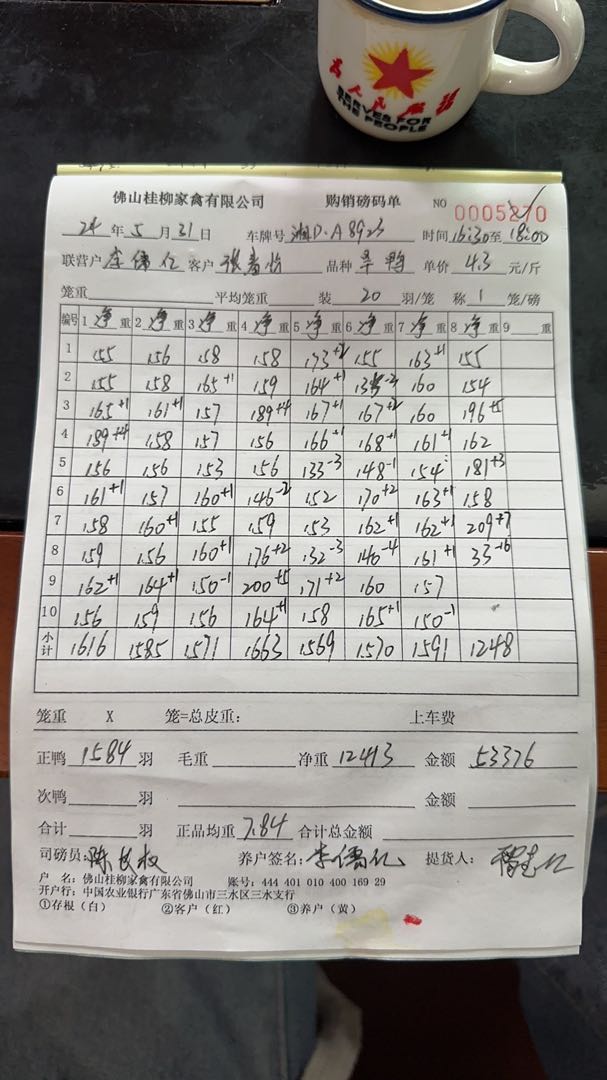 为人民服务
SERVES FOR
THE PEOPLE
佛山桂柳家禽有限公司 购销磅码单 NO 0005270
24 年 5 月 31 日 车牌号 湘D·A8923 时间 16:30 至 18:00
联营户 李儒仁 客户 品种 旱鸭 单价 4.3 元/斤
笼重 平均笼重 装 20 羽/笼 称 1 笼/磅
编号 1 净 重 2 净 重 3 净 重 4 净 重 5 净 重 6 净 重 7 净 重 8 净 重 9 重
1 155 156 158 158 173+2 155 163+1 155
2 155 158 165+1 159 164+1 160 154
3 165+1 161+1 157 189+4 167+1 167+2 160 196+5
4 189+4 158 157 156 166+1 168+1 161+1 162
5 156 156 153 156 133-3 148-1 154 181+3
6 161+1 157 160+1 146-2 152 170+2 163+1 158
7 158 160+1 155 159 153 162+1 162+1 209+7
8 159 156 160+1 176+2 132-3 140-4 161+1 33-16
9 162+1 164+1 150-1 200+5 171+2 160 157
10 156 159 156 164+1 158 165+1 150-1
小计 1616 1585 1571 1663 1569 1570 1591 1248
笼重 X 笼=总皮重: 上车费
正鸭 1584 羽 毛重 净重 12413 金额 53376
次鸭 羽 金额
合计 羽 正品均重 7.84 合计总金额
司磅员: 养户签名: 李儒仁 提货人:
户 名: 佛山桂柳家禽有限公司 账号: 444 401 010 400 169 29
开户行: 中国农业银行广东省佛山市三水区三水支行
①存根（白） ②客户（红） ③养户（黄）